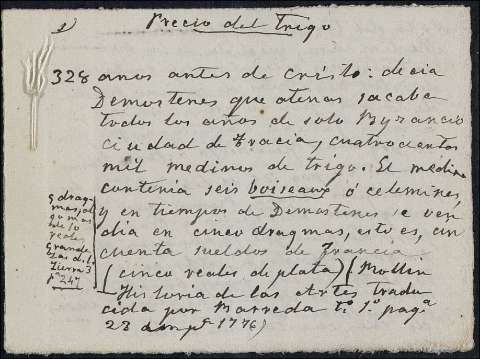 Precio del trigo
328 años antes de Cristo: decia
Demostenes que atenas sacaba
todos los años de solo Byzancio
ciudad de Tracia, cuatrocientos
mil medinos de trigo. El medino
contenia seis boiseaux ó celemines,
y en tiempos de Demostenes se ven
dia en cinco dragmas, esto es, cin
cuenta sueldos de Francia
(cinco reales de plata) (Rollin
Historia de las Artes tradu
cida por Barreda tº 1º pagª
23 1776)
5 drag
mas,
de 10
reales
Grande
Zas de la
Tierra 3
pª 247